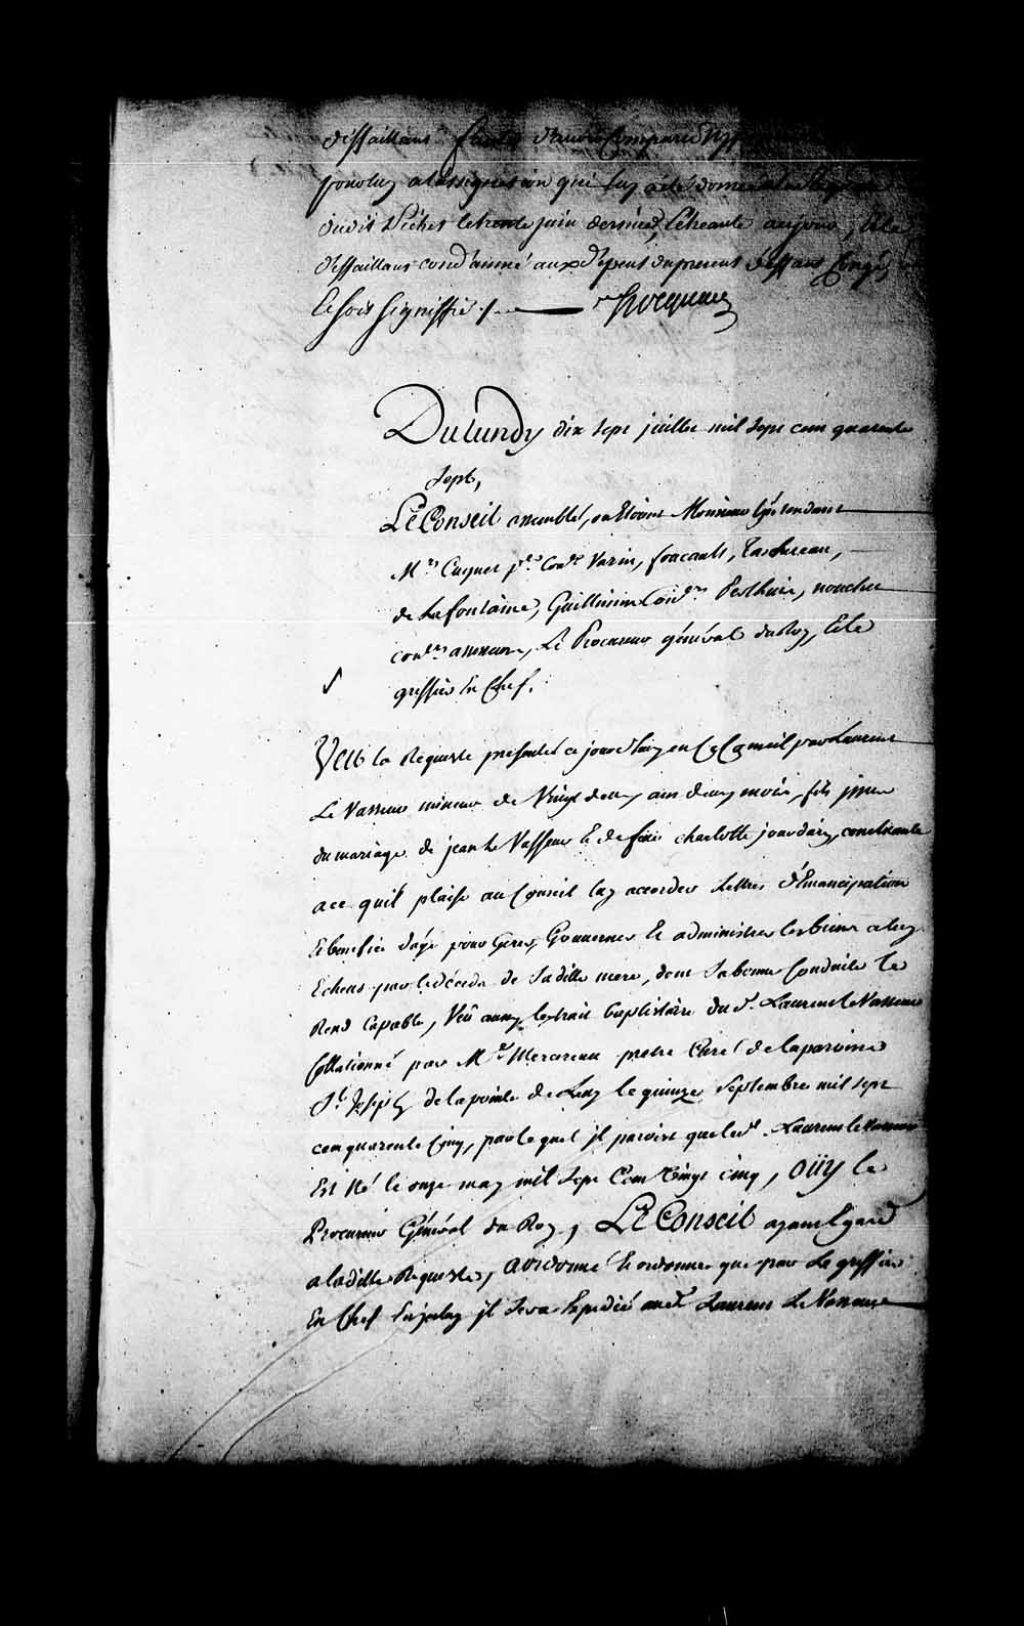 deffaillant faute d'avoir Comparu ny
pour luy alassignation qui luy a été donnée
dudit Pichet letrente juin dernier, Echeante aujour, & le
deffaillant condamné aux depens du present deffaut Congé,
& soit signiffié ./. Hocquart
Du lundy dix sept juillet mil sept cent quarante
Sept,
Le Conseil assemblé, ou Etoient Monsieur L'jntendant
Mrs Cugnet pr. Conr. Varin, foucault, Taschereau,
de Lafontaine, Guillimin Conders Perthuis, nouchet
conders assesseurs, Le Procureur général du Roy, & le
greffier En Chef.
Veu la Requeste presentée ce jourd'huy en Ce Conseil par Laurent
Le Vasseur mineur de Vingt deux ans deux mois, fils jssu
du mariage de jean Le Vasseur & de feüe charlotte jourdain, concluante
ace quil plaise au Conseil luy accorder Lettres d'Emancipation
& benefice dâge pour Gerer, Gouverner & administrer les biens aluy
Echeus par le décéds de Ladite mere, dont Sabonne Conduite Le
Rend Capable, Veû aussy lextrait baptistaire dud. Laurent Le Vasseur
Collationné par Mr. Mercereau pretre Curé delaparoisse
St. Joseph de la pointe de Levy le quinze septembre mil sept
cent quarante Cinq, par lequel jl paroist que led. Laurent le Vasseur
Est Né le onze may mil Sept Cent Vingt cinq, oüy le
Procureur Général du Roy, Le Conseil ayant Egard
aladitte Requeste, a ordonné & ordonne que par Le greffier
En Chef En jceluy jl Sera Expedié aud. Laurent Le Vasseur